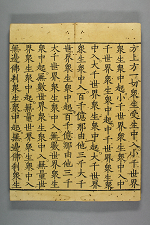 方上方一切衆生受生中入小千世界
衆生衆中起小千世界衆生衆中入
中千世界衆生衆中起中千世界衆生衆
中入大千世界衆生衆中起大千世界
衆生衆中入百千億那由他三千大千
世界衆生衆中起百千億那由他三千
大千世界衆生衆中入無數世界衆生
衆中起無數世界衆生衆中入無量世
界衆生衆中起無量世界衆生衆中入
無邊佛刹衆生衆中起無邊佛刹衆生